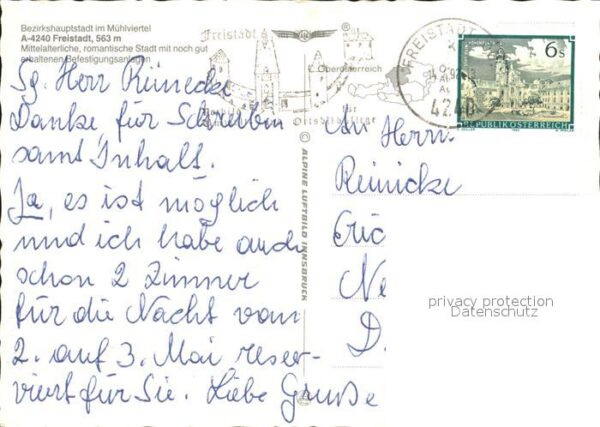 Bezirkshauptstadt im Mühlviertel
A-4240 Freistadt, 563 m
Mittelalterliche, romantische Stadt mit noch gut
erhaltenen Befestigungsanlagen
Freistadt
Oberösterreich
für
FREISTADT
4240
6 S
REPUBLIK ÖSTERREICH
Sg. Herr Reinecke
Danke für Schreiben
samt Inhalt.
Ja, es ist möglich
und ich habe auch
schon 2 Zimmer
für die Nacht vom
2. auf 3. Mai reser-
viert für Sie. Liebe Grüße
© ALPINE LUFTBILD INNSBRUCK
An Herrn
Reinicke
Eric
Ne
D.
privacy protection
Datenschutz